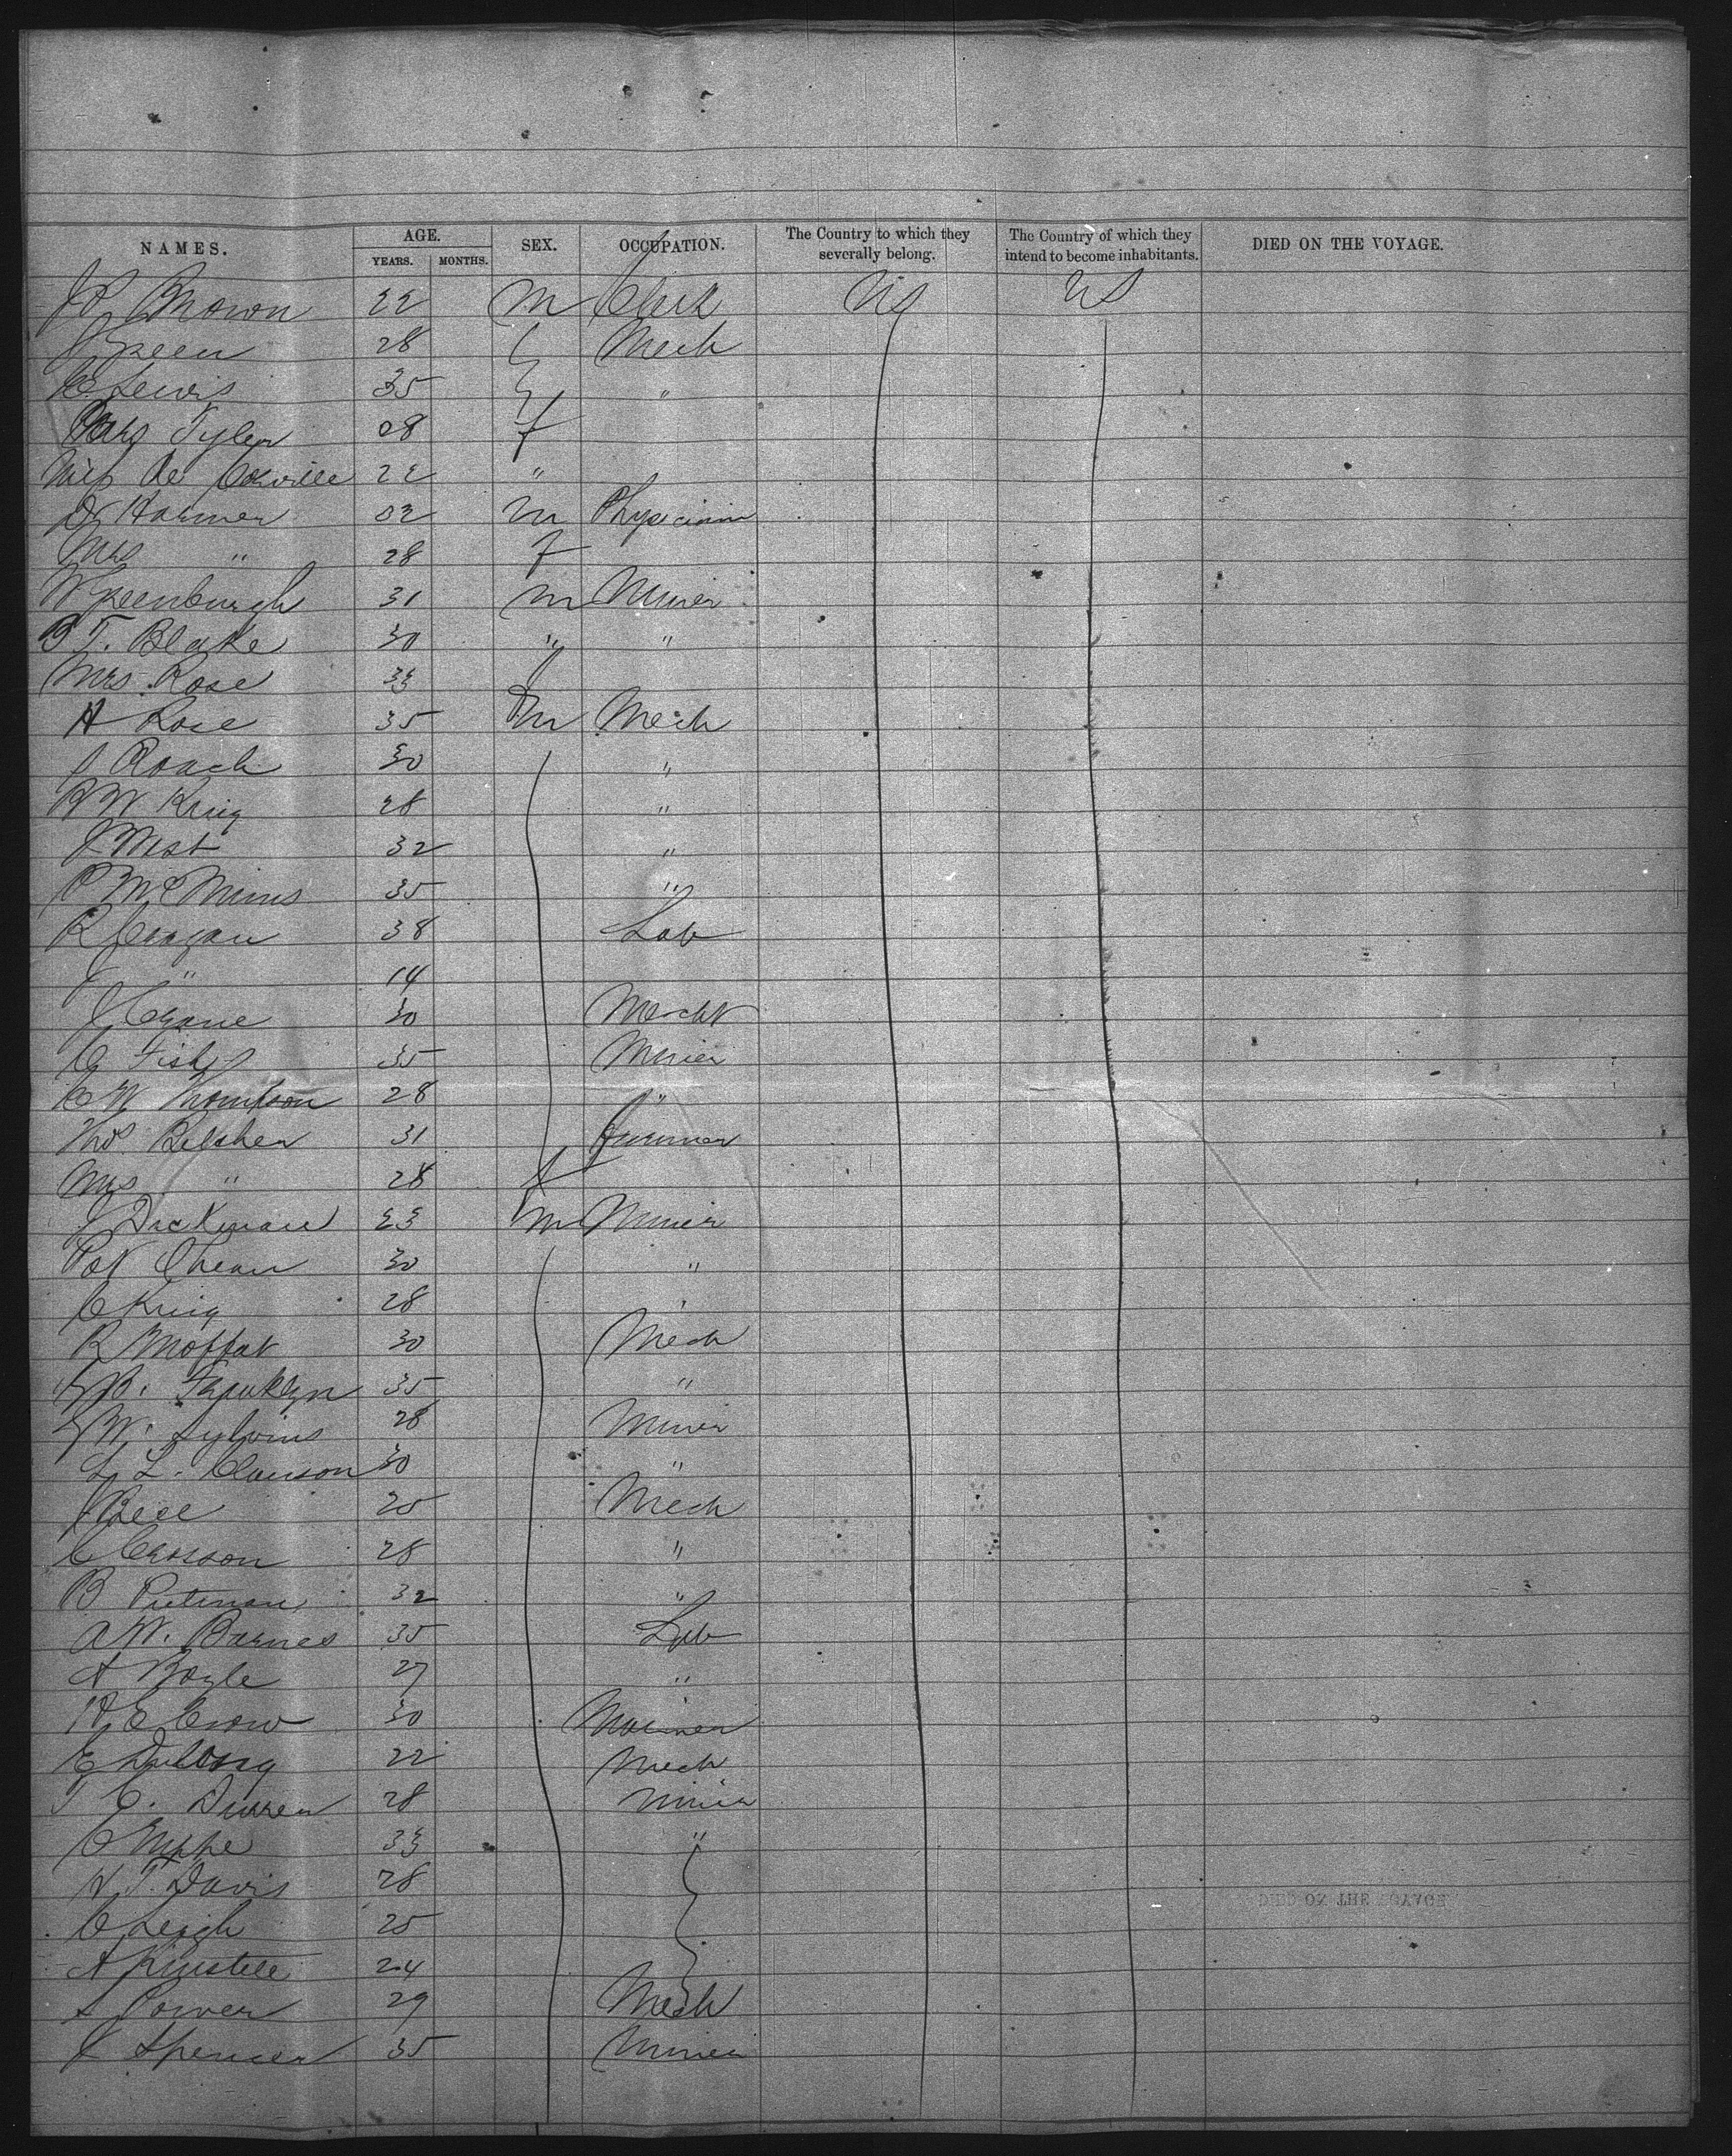 NAMES. AGE. SEX. OCCUPATION. The Country to which they severally belong. The Country of which they intend to become inhabitants. DIED ON THE VOYAGE.
YEARS. MONTHS.
J R Brown 22 m Clerk US US
J Green 28 Mech
C Lewis 35 "
Mrs Tyler 28 f
Miss De 22 "
Dr Harmer 32 m Physician
Mrs " 28 f
W Greenburgh 31 m Miner
B T. Blake 30 " "
Mrs. Rose 33
H Rose 35 m Mech
J Roach 30 "
R W King 28 "
J West 32 "
P Mc Mims 35 "
R Cragan 38 Lab
J " 14
J Crane 30 Mercht
C Fish 35 Miner
C W Thompson 28 "
Thos Belcher 31 Farmer
Mrs " 28 f
J Dickman 23 m Miner
Pat Ohearn 30 "
C King 28 "
R Moffat 30 Mech
B. Franklyn 35 "
W. Sylvins 28 Miner
L L. Clauson 30 "
J Bell 25 Mech
C Crosson 28 "
B Putman 32 "
A W. Barnes 35 Lab
A Boyle 27 "
H E Crow 30 Mariner
E 22 Mech
T C. Durren 28 Miner
C 33 "
H T. Davis 28
C Leigh 25
A Kinstell 24
S Power 29 Mech
J Spencer 35 Miner